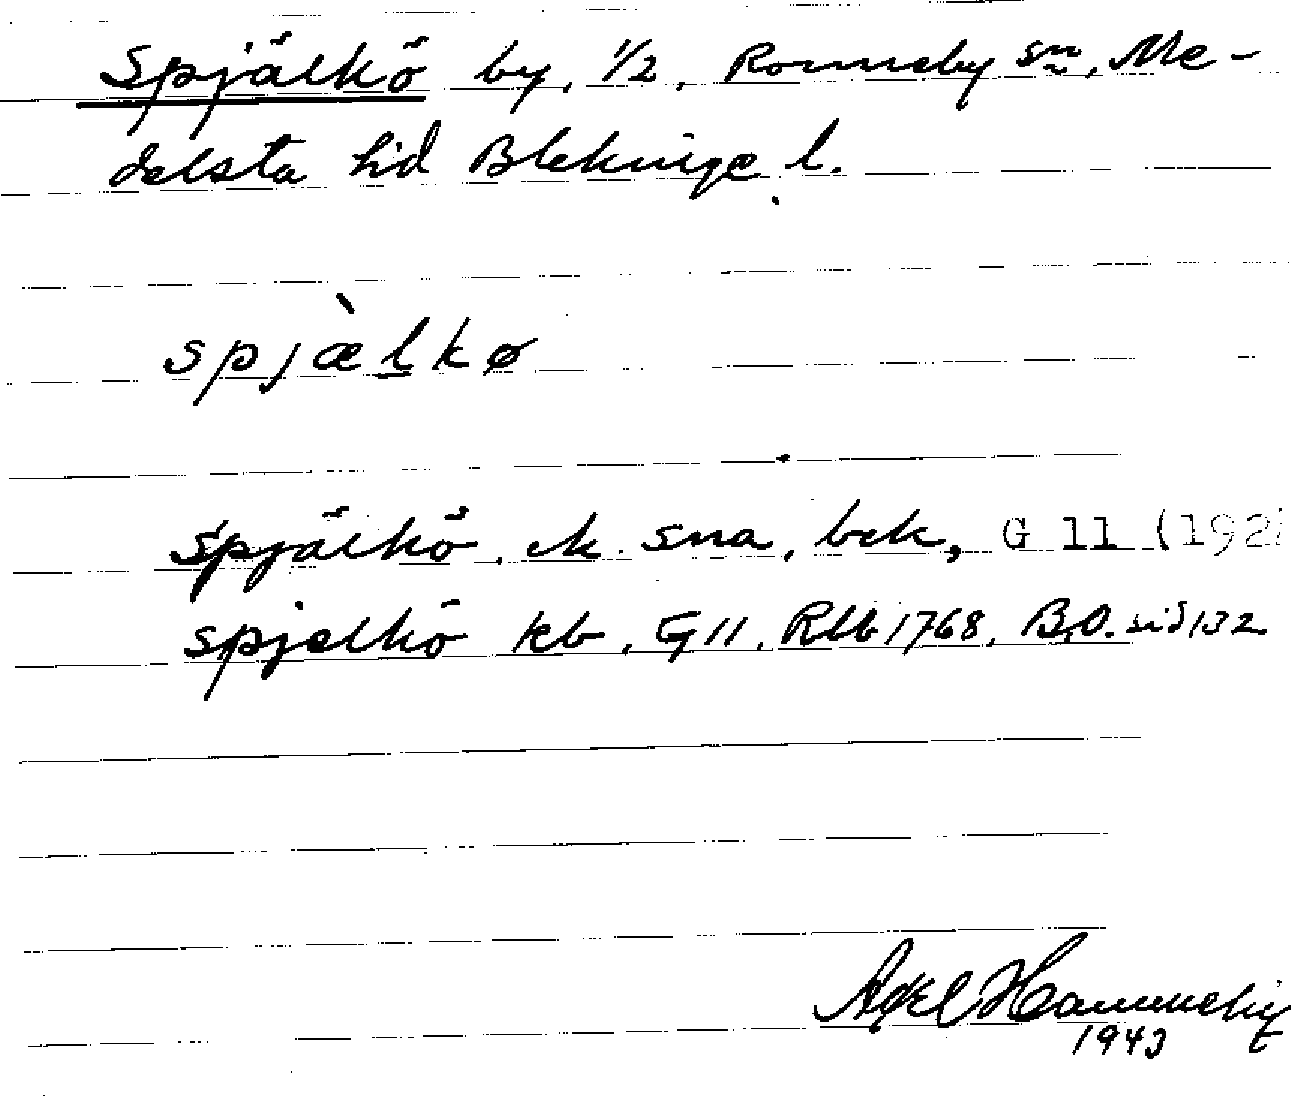 Spjälkö by, 1/2, Ronneby sn, Me-
delsta hd Blekinge l.
spjæ̀lkø
Spjälkö, ek. sna, bek, G 11 (192
Spjelkö kb, G 11, Rlb 1768, B.O. sid 132
Axel Hammneby
1943